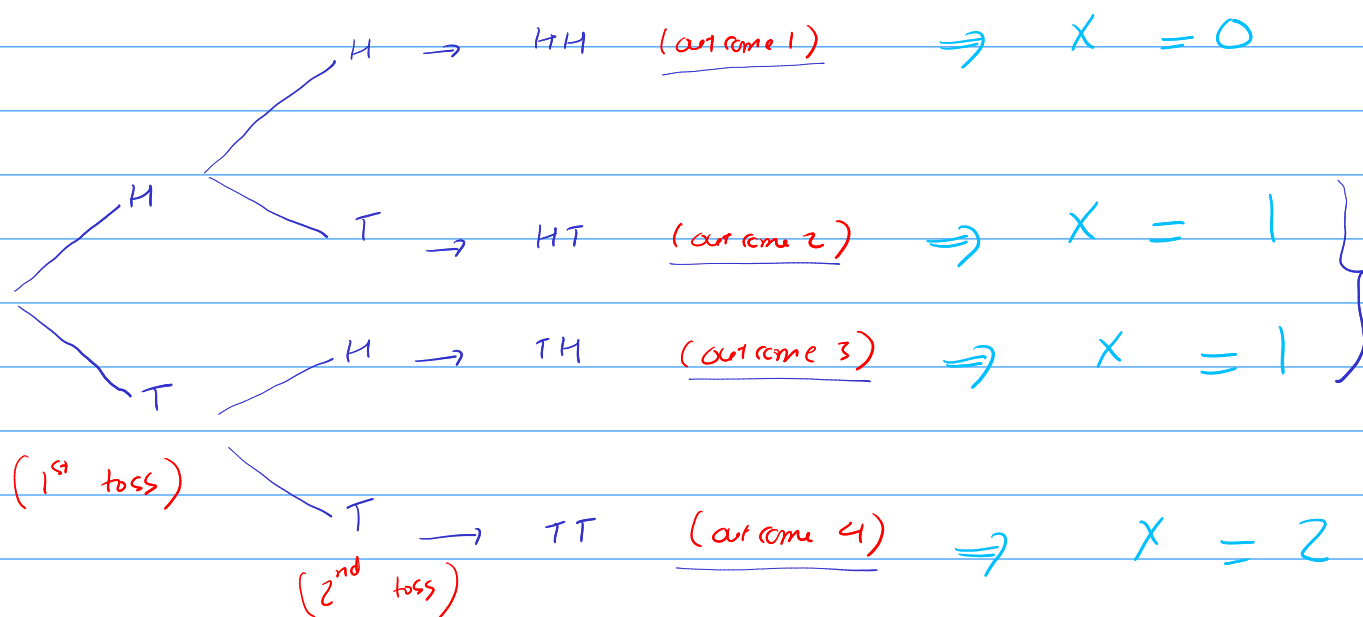 H → HH (outcome 1) ⇒ X = 0
H
T → HT (outcome 2) ⇒ X = 1
H → TH (outcome 3) ⇒ X = 1
T
(1st toss)
T → TT (outcome 4) ⇒ X = 2
(2nd toss)